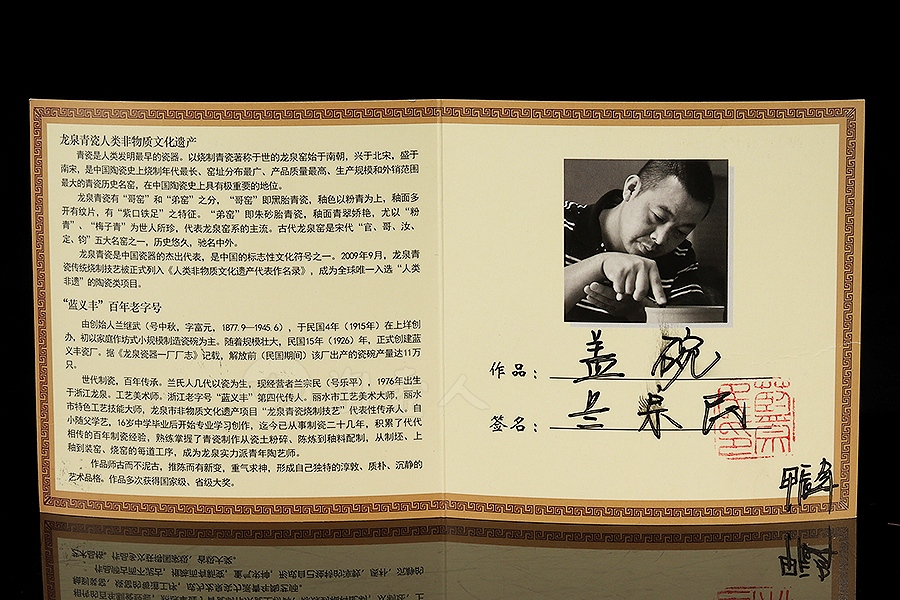 龙泉青瓷人类非物质文化遗产
青瓷是人类发明最早的瓷器。以烧制青瓷著称于世的龙泉窑始于南朝，兴于北宋，盛于
南宋，是中国陶瓷史上烧制年代最长、窑址分布最广、产品质量最高、生产规模和外销范围
最大的青瓷历史名窑，在中国陶瓷史上具有极重要的地位。
龙泉青瓷有“哥窑”和“弟窑”之分，“哥窑”即黑胎青瓷，釉色以粉青为上，釉面多
开有纹片，有“紫口铁足”之特征。“弟窑”即朱砂胎青瓷，釉面青翠娇艳，尤以“粉
青”、“梅子青”为世人所珍，代表龙泉窑系的主流。古代龙泉窑是宋代“官、哥、汝、
定、钧”五大名窑之一，历史悠久，驰名中外。
龙泉青瓷是中国瓷器的杰出代表，是中国的标志性文化符号之一。2009年9月，龙泉青
瓷传统烧制技艺被正式列入《人类非物质文化遗产代表作名录》，成为全球唯一入选“人类
非遗”的陶瓷类项目。
“蓝义丰”百年老字号
由创始人兰继武（号中秋，字富元，1877.9—1945.6），于民国4年（1915年）在上垟创
办，初以家庭作坊式小规模制造瓷碗为主。随着规模壮大，民国15年（1926）年，正式创建蓝
义丰瓷厂。据《龙泉瓷器一厂厂志》记载，解放前（民国期间）该厂出产的瓷碗产量达11万
只。
世代制瓷，百年传承。兰氏人几代以瓷为生，现经营者兰宗民（号乐平），1976年出生
于浙江龙泉。工艺美术师。浙江老字号“蓝义丰”第四代传人。丽水市工艺美术大师，丽水
市特色工艺技能大师，龙泉市非物质文化遗产项目“龙泉青瓷烧制技艺”代表性传承人。自
小随父学艺，16岁中学毕业后开始专业学习创作，迄今已从事制瓷二十几年，积累了代代
相传的百年制瓷经验，熟练掌握了青瓷制作从瓷土粉碎、陈炼到釉料配制，从制坯、上
釉到装窑、烧窑的每道工序，成为龙泉实力派青年陶艺师。
作品师古而不泥古，推陈而有新变，重气求神，形成自己独特的淳敦、质朴、沉静的
艺术品格。作品多次获得国家级、省级大奖。
作品：盖碗
签名：兰宗民
甲辰年